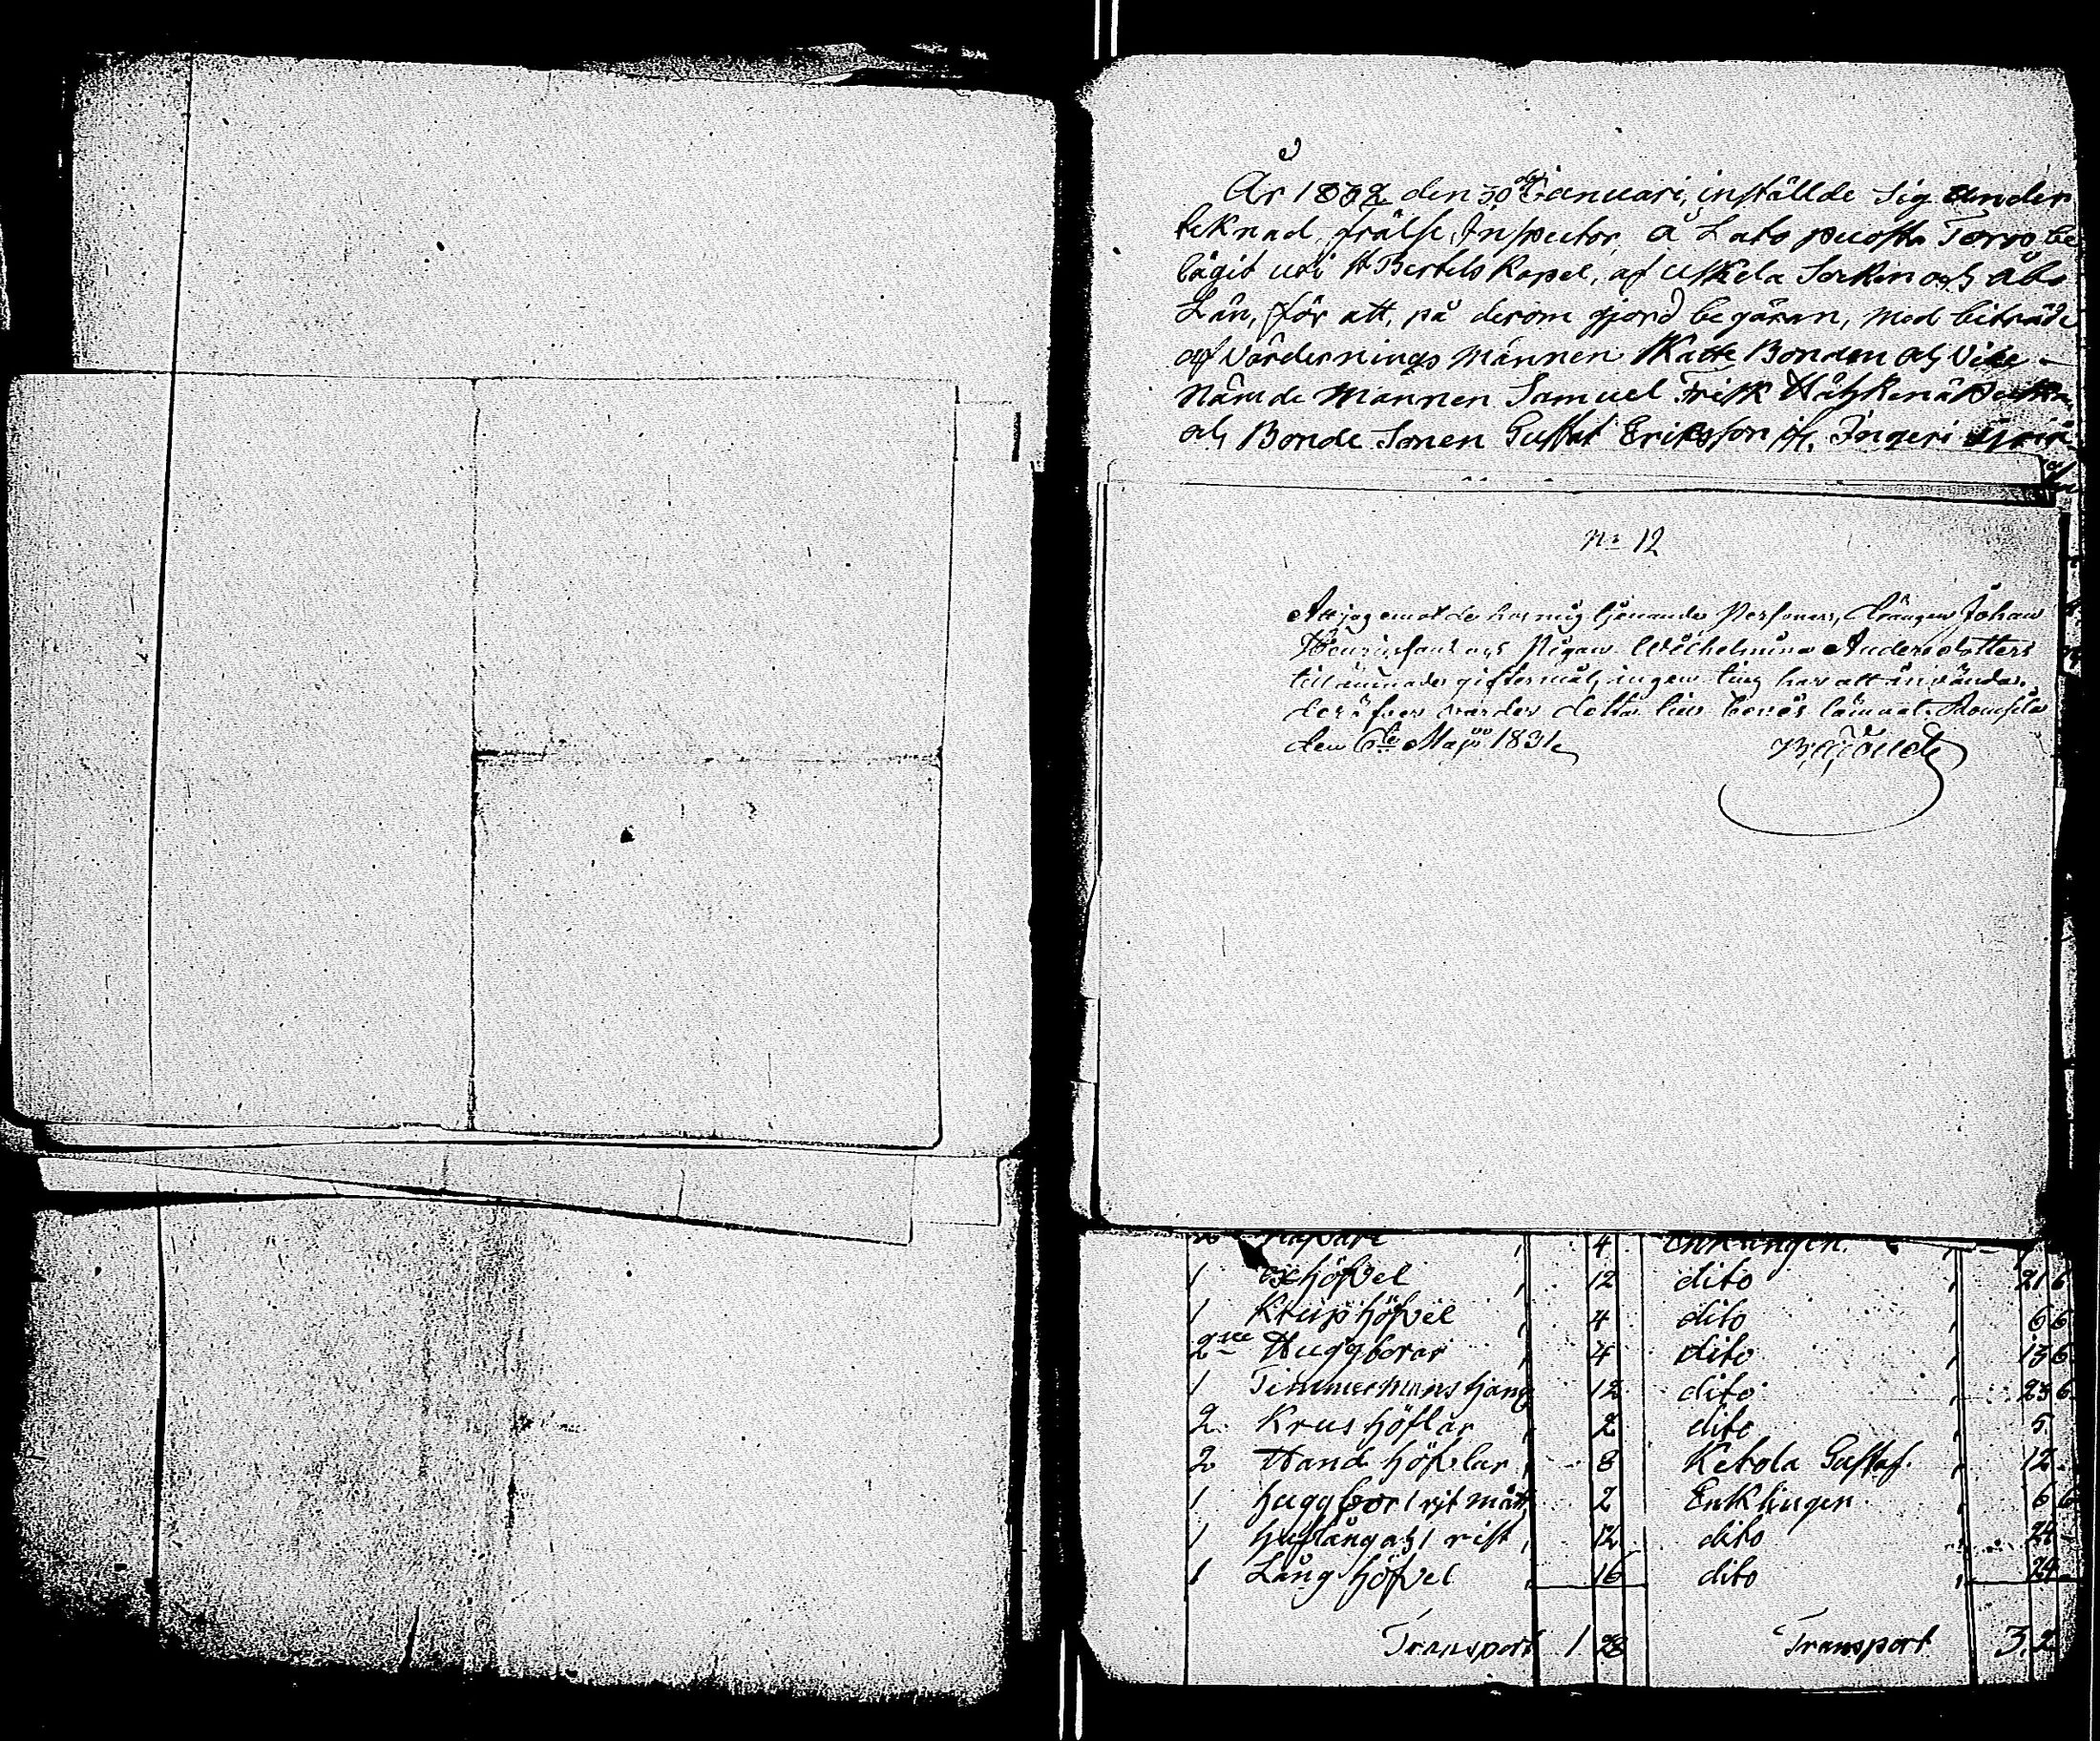 År 1832 den 30de Januari, instälde Sig under
teknad frälse Inspector å Lato Torp be
lägit uti St Bertels Kapel, af Uskela Sokn och Åbo
Län, för att, på derom gjord begäran, med biträde
af Värdernings Männen Skatte Bonden och Vice
Nämde Mannen Samuel Frisk
och Bonde Sonen Gustaf Eriksson if. Ingeri
No 12
Att jag emot de hos mig tjenande Personers, Drängen Johan
Henricssons och Pigan Wilhelmina Andersdotters
tillämnade giftermål, ingen ting har att invända,
deröfver varder detta till bevis lämnat. Romsila
den 6te Maji 1831.
4 Enklingen.
1 höfvel 12 dito 21 6
1 höfvel 4 dito 6 6
2ne Huggborar 4 dito 13 6
1 Timmermans tjang 12 dito 23 6
2 Krus höflar 2 dito 5
2 Hand höfvlar 8 Ketola Gustaf 12
1 huggbor 1 rit mått 2 Enklingen 6 6
1 huftång och 1 rist 12 dito 24
1 Lång höfvel 16 dito 24
Transport 1 28 Transport 3 2